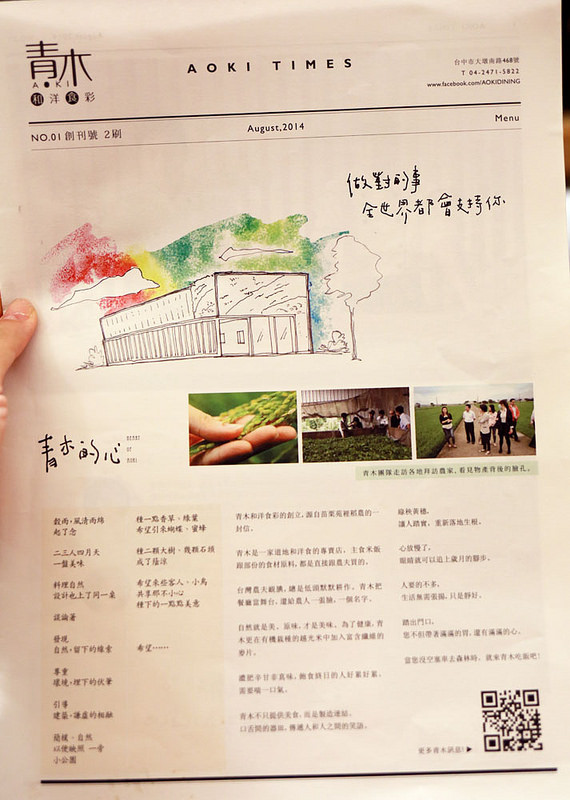 青木
AOKI
和洋食彩
AOKI TIMES
台中市大墩南路468號
T 04-2471-5822
www.facebook.com/AOKIDINING
NO.01 創刊號 2刷
August,2014
Menu
做對的事
全世界都會支持你
青木的心
HEART
OF
AOKI
青木團隊走訪各地拜訪農家，看見物產背後的臉孔。
穀雨，風清雨綿
起了念
二三人四月天
一盤美味
料理自然
設計也上了同一桌
談論著
發現
自然，留下的線索
尊重
環境，埋下的伏筆
引導
建築，謙虛的相融
簡樸、自然
以便融照 一旁
小公園
種一點香草、綠葉
希望引來蝴蝶、蜜蜂
種二顆大樹、幾顆石頭
成了蔭涼
希望來些客人、小鳥
共享那不小心
種下的一點點美意
希望……
青木和洋食彩的創立，源自苗栗苑裡稻農的一
封信。
青木是一家道地和洋食的專賣店，主食米飯
跟部份的食材原料，都是直接跟農夫買的。
台灣農夫靦腆，總是低頭默默耕作。青木把
餐廳當舞台，還給農人一張臉，一個名字。
自然就是美、原味，才是美味。為了健康，青
木更在有機栽種的越光米中加入富含纖維的
麥片。
濃肥辛甘非真味，飽食終日的人好累好累，
需要喘一口氣。
青木不只提供美食，而是製造連結。
以古閩的器皿，傳遞人和人之間的笑語。
綠秧黃穗，
讓人踏實，重新落地生根。
心放慢了，
眼睛就可以追上歲月的腳步。
人要的不多，
生活無需張揚，只是靜好。
踏出門口，
您不但帶著滿滿的胃，還有滿滿的心。
當您沒空靠車去森林時、就來青木吃飯吧！
更多青木訊息！▶